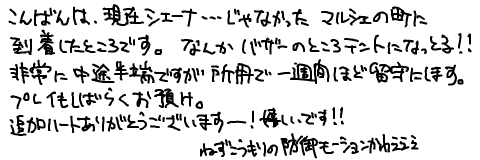 こんばんは、現在シェーナ…じゃなかった マルシェの町に
到着したところです。なんかバザーのところテントになっとる!!
非常に中途半端ですが所用で一週間ほど留守にします。
プレイもしばらくお預け。
追加ハートありがとうございますー!嬉しいです!!
ねずこうもりの防御モーションかわええええ